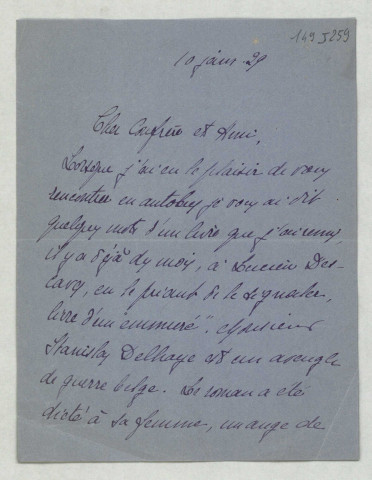 149 J 259
10 janv. 29
Cher Confrère et Ami,
Lorsque j'ai eu le plaisir de vous
rencontrer en autobus je vous ai dit
quelques mots d'un livre que j'ai remis,
il y a déjà dx mois, à Lucien Des-
caves, en le priant de le signaler,
livre d'un emmuré". Monsieur
Stanislas Delhaye est un aveugle
de guerre belge. Le roman a été
dicté à sa femme, un ange de